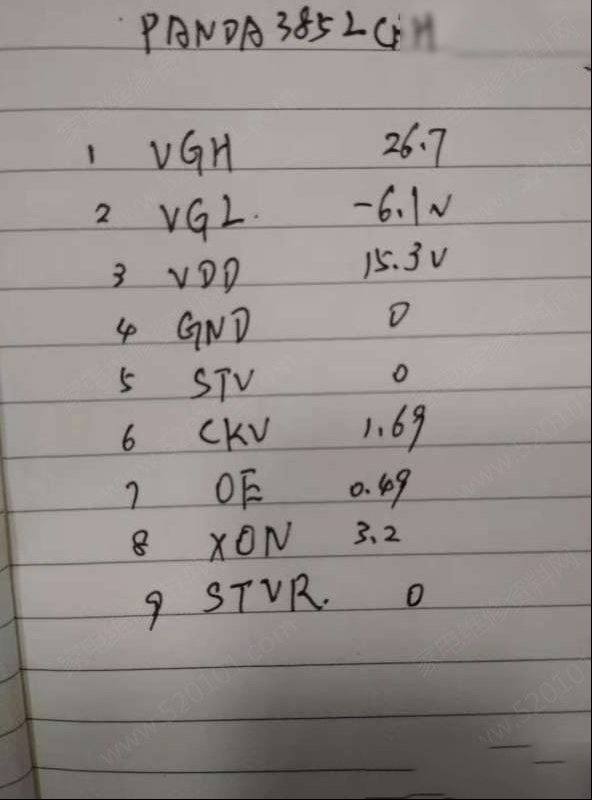 PANDA 3852
1 VGH 26.7
2 VGL. -6.1V
3 VDD 15.3V
4 GND 0
5 STV 0
6 CKV 1.69
7 OE 0.49
8 XON 3.2
9 STVR. 0